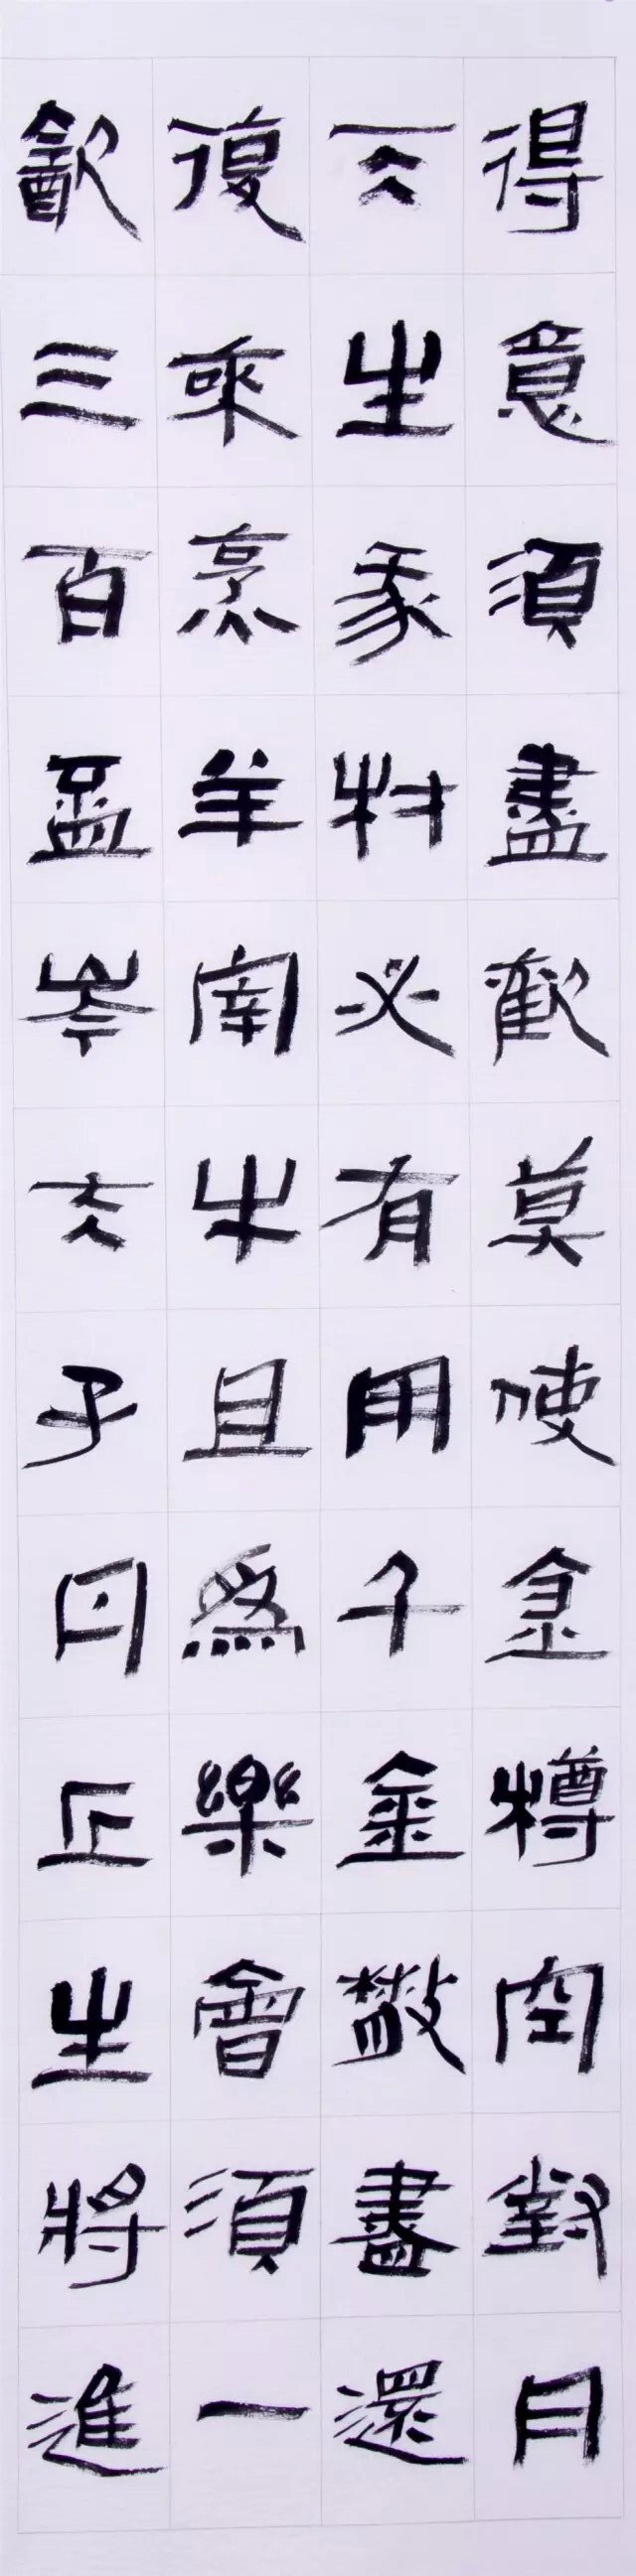 得意須盡歡莫使金樽空對月
天生我材必有用千金散盡還
復來烹羊宰牛且爲樂會須一
飲三百盃岑夫子丹丘生將進